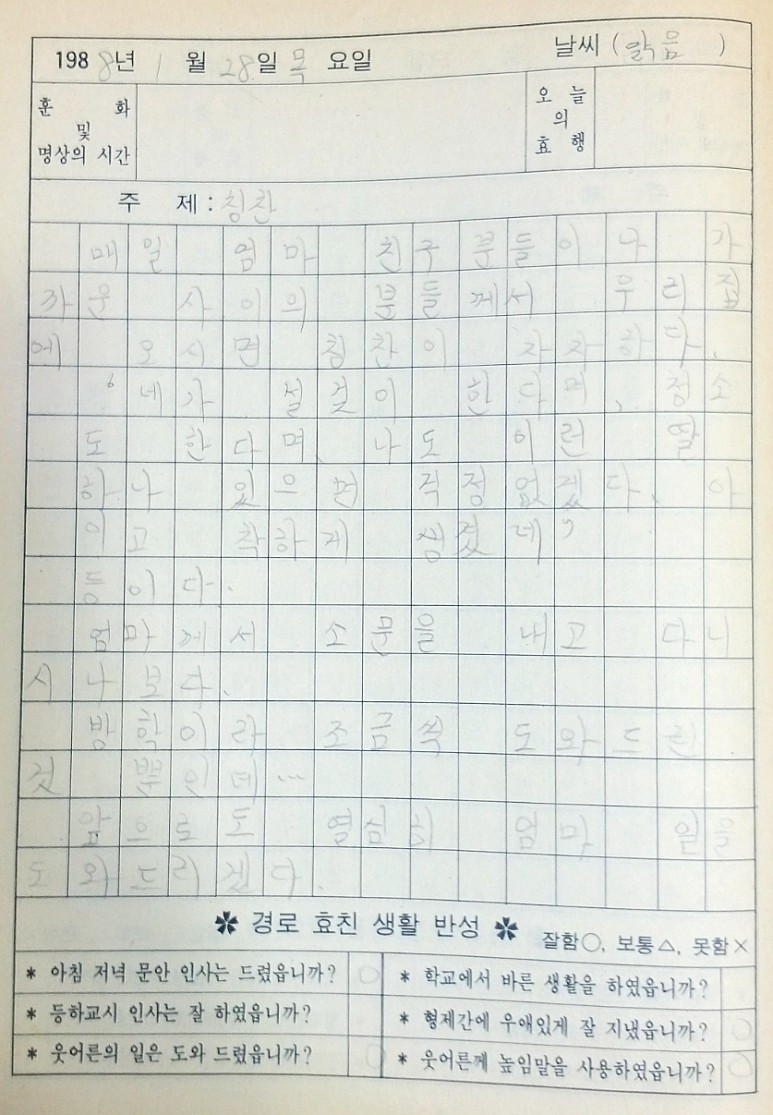 1988년 1월 28일 목요일 날씨 (맑음)
훈화 및 명상의 시간
오늘의 효행
주 제 : 칭찬
매일 엄마 친구 분들이나 가
까운 사이의 분들께서 우리 집
에 오시면 칭찬이 자자하다.
'네가 설겆이 한다며, 청소
도 한다며, 나도 이런 딸
하나 있으면 걱정없겠다. 아
이고 착하게 생겼네'
등이다.
엄마께서 소문을 내고 다니
시나보다.
방학이라 조금씩 도와드린
것 뿐인데…
앞으로도 열심히 엄마 일을
도와드리겠다.
✽ 경로 효친 생활 반성 ✽ 잘함○, 보통△, 못함×
* 아침 저녁 문안 인사는 드렸읍니까? ○
* 등하교시 인사는 잘 하였읍니까?
* 웃어른의 일은 도와 드렸읍니까? ○
* 학교에서 바른 생활을 하였읍니까?
* 형제간에 우애있게 잘 지냈읍니까? ○
* 웃어른께 높임말을 사용하였읍니까? ○